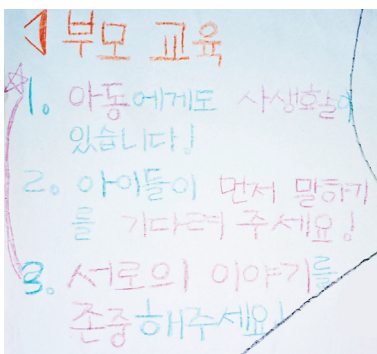 부모 교육
1. 아동에게도 사생활이
있습니다!
2. 아이들이 먼저 말하기
를 기다려 주세요!
3. 서로의 이야기를
존중해주세요!